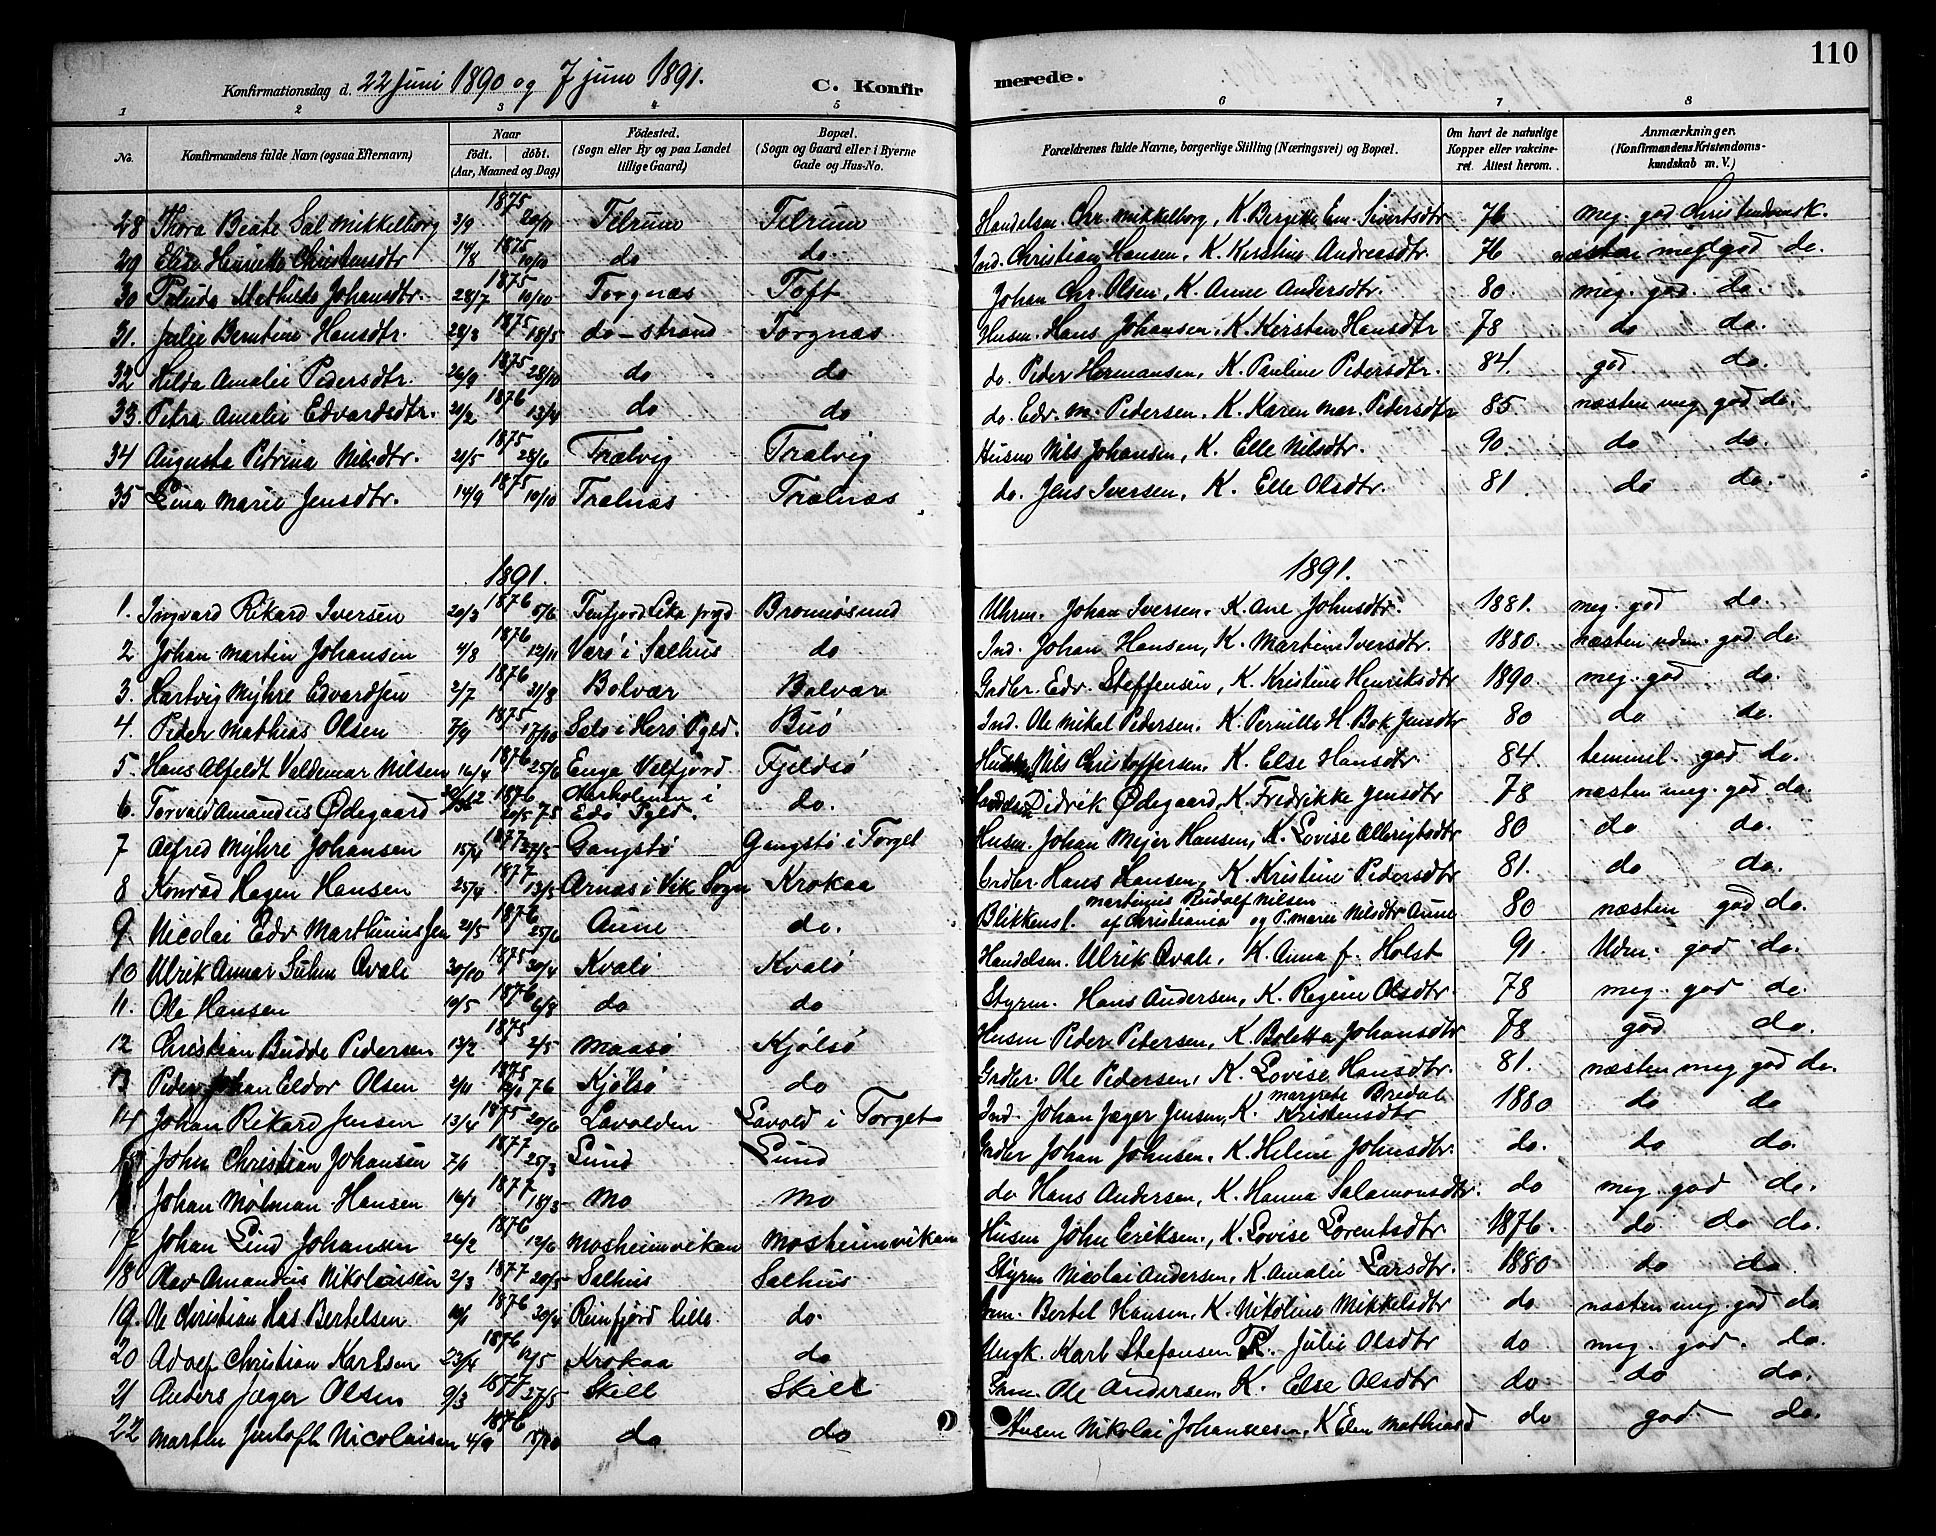 110
Konfirmationsdag d. 22 Juni 1890 og 7 juni 1891. C. Konfirmerede.
1 2 3 4 5 6 7 8
No. Konfirmandens fulde Navn (ogsaa Efternavn) Naar født. døbt. (Aar, Maaned og Dag) Fødested. (Sogn eller By og paa Landet tillige Gaard) Bopæl. (Sogn og Gaard eller i Byerne Gade og Hus-No. Forældrenes fulde Navne, borgerlige Stilling (Næringsvei) og Bopæl. Om havt de naturlige Kopper eller vakcineret. Attest herom. Anmærkninger. (Konfirmandens Kristendomskundskab m. V.)
28 Thora Beate Sal Mikkelborg 3/9 1875 20/11 Tilrum Tilrum Handelsm. Chr. Mikkelborg, K. Bergitte Em. Sivertsdtr 76 meg. god Christendomsk.
29 Elise Henriette Christensdtr 14/8 1875 10/10 do do. Ind. Christian Hansen, K. Kirstine Andreasdtr. 76 næsten meg god do.
30 Mathilde Johansdtr. 28/7 1875 10/10 Torgnæs Toft Johan Chr. Olsen, K. Anne Andersdtr. 80 meg. god do.
31. Julie Berntine Hansdtr. 28/3 1875 18/5 do-strand Torgnæs Husm. Hans Johansen, K. Kirsten Hansdtr 78 do do.
32 Hilda Amalie Pedersdtr. 26/9 1875 28/10 do do do. Peder Hermansen, K. Pauline Pedersdtr. 84. god do.
33. Petra Amalie Edvardsdtr. 21/2 1876 13/4 do do do. Edv. M. Pedersen, K. Karen Mar. Pedersdtr 85 næsten meg god do.
34 Augusta Petrina Nilsdtr. 21/5 1875 28/6 Trælvig Trælvig Husm Nils Johansen, K. Elle Nilsdtr. 90. do do.
35 Lina Marie Jensdtr. 14/9 1875 10/10 Trælnæs Trælnæs do. Jens Iversen, K. Else Olsdtr. 81. do do.
1891. 1891.
1. Ingvard Rikard Iversen 20/3 1876 5/6 Terfjord Leka prgd Brønnøsund Uhrm. Johan Iversen, K. Ane Johnsdtr. 1881. meg. god do.
2 Johan Martin Johansen 4/8 1876 12/11 Værø i Salhus do Ind. Johan Hansen, K. Martine Iversdtr. 1880. næsten udm. god do.
3. Hartvig Myhre Edvardsen 2/7 1876 21/8 Bolvær Bolvær Grdbr. Edv. Steffensen, K. Kristine Henriksdtr 1890. meg. god do.
4. Peder Mathias Olsen 7/9 1875 17/10 Salø i Herø Pgld. Buø Ind. Ole Mikal Pedersen. K. Pernille H. Bok Jensdtr 80 do do.
5. Hans Alfeldt Valdemar Nilsen 16/4 1876 25/6 Enga Velfjord Fjeldsø Nils Christoffersen, K. Else Hansdtr 84. temmel. god do.
6. Torvald Amandus Ødegaard 1876 20/5 75 i Edø Pgld. do. Handelsm Didrik Ødegaard, K. Fredrikke Jensdtr 78 næsten meg. god do.
7 Alfred Myhre Johansen 15/4 1877 27/5 Gangstø Gangstø i Torget Husm. Johan Mejer Hansen, K. Lovise Albrigtsdtr 80 do do.
8 Konrad Hagen Hansen 25/4 1877 13/5 Arnæs i Vik Sogn Krokaa Grdbr. Hans Hansen, K. Kristine Pedersdtr 81. do do.
9. Nicolai Edv Marthiniussen 21/5 1876 25/6 Aune do. Blikkensl. Martinius Rudolf Nilsen af Christiania og P. Marie Nilsdtr Aune 80 næsten god do.
10 Ulrik Annar Suhm Qvale 30/10 1875 30/4 Kvalø Kvalø Handelsm. Ulrik Qvale, K. Anna f. Holst 91. Udm. god do.
11. Ole Hansen 10/5 1876 6/8 do do Styrm. Hans Andersen, K. Regine Olsdtr. 78 meg. god do.
12 Christian Budde Pedersen 13/2 1875 2/5 Maasø Kjølsø Husm Peder Petersen, K. Boletta Johansdtr 78 god do.
13 Peder Johan Eldor Olsen 2/11 1875 76 Kjølsø do Grdbr. Ole Pedersen, K. Lovise Hansdtr. 81. næsten meg god do.
14 Johan Rikard Jensen 13/4 1875 20/6 Lavolden Lavold i Torget Ind. Johan Jæger Jensen, K. Margrete Bredal Kristensdtr 1880 do do
15 John Christian Johansen 7/1 1877 25/3 Lund Lund Grdbr Johan Johnsen, K. Heline Johnsdtr. do. do do.
Johan Mølman Hansen 16/1 1877 18/3 Mo Mo do Hans Andersen, K. Hanna Salamonsdtr. do meg. god do.
17 Johan Lind Johansen 26/2 1876 12/6 Mosheimvikan Mosheimvikan Husm John Eriksen., K. Lovise Lorentsdtr 1876. do do do.
18 Olav Amandus Nikolaisen 2/3 1877 20/5 Salhus Salhus Styrm Nicolai Andersen, K. Amalie Larsdtr. 1880 do do.
19. Ole Christian Has Bertelsen 10/1 1876 30/4 Reinfjord lille do. Inn. Bertel Hansen, K. Nikoline Mikkelsdtr do næsten meg. god do
20 Adolf Christian Karlsen 23/4 1876 12/5 Krokaa do Ungk. Karl Stefansen P. Julie Olsdtr do meg. god. do.
21 Anders Jæger Olsen 9/3 1877 27/5 Skill Skill Inn. Ole Andersen, K. Else Olsdtr do do do.
22 Martin Jentoft Nicolaisen 4/9 1876 15/10 do do Husm Nikolai Johannesen, K Elen Mathiasd do god do.